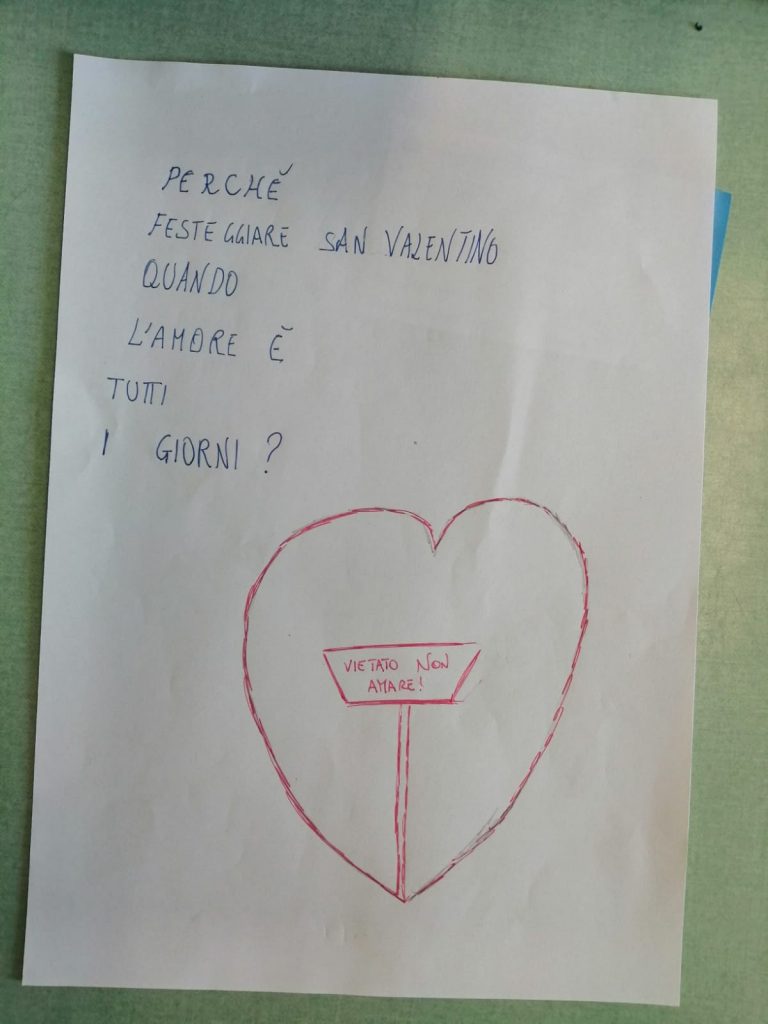 PERCHÉ
FESTEGGIARE SAN VALENTINO
QUANDO
L'AMORE È
TUTTI
I GIORNI?
VIETATO NON
AMARE!